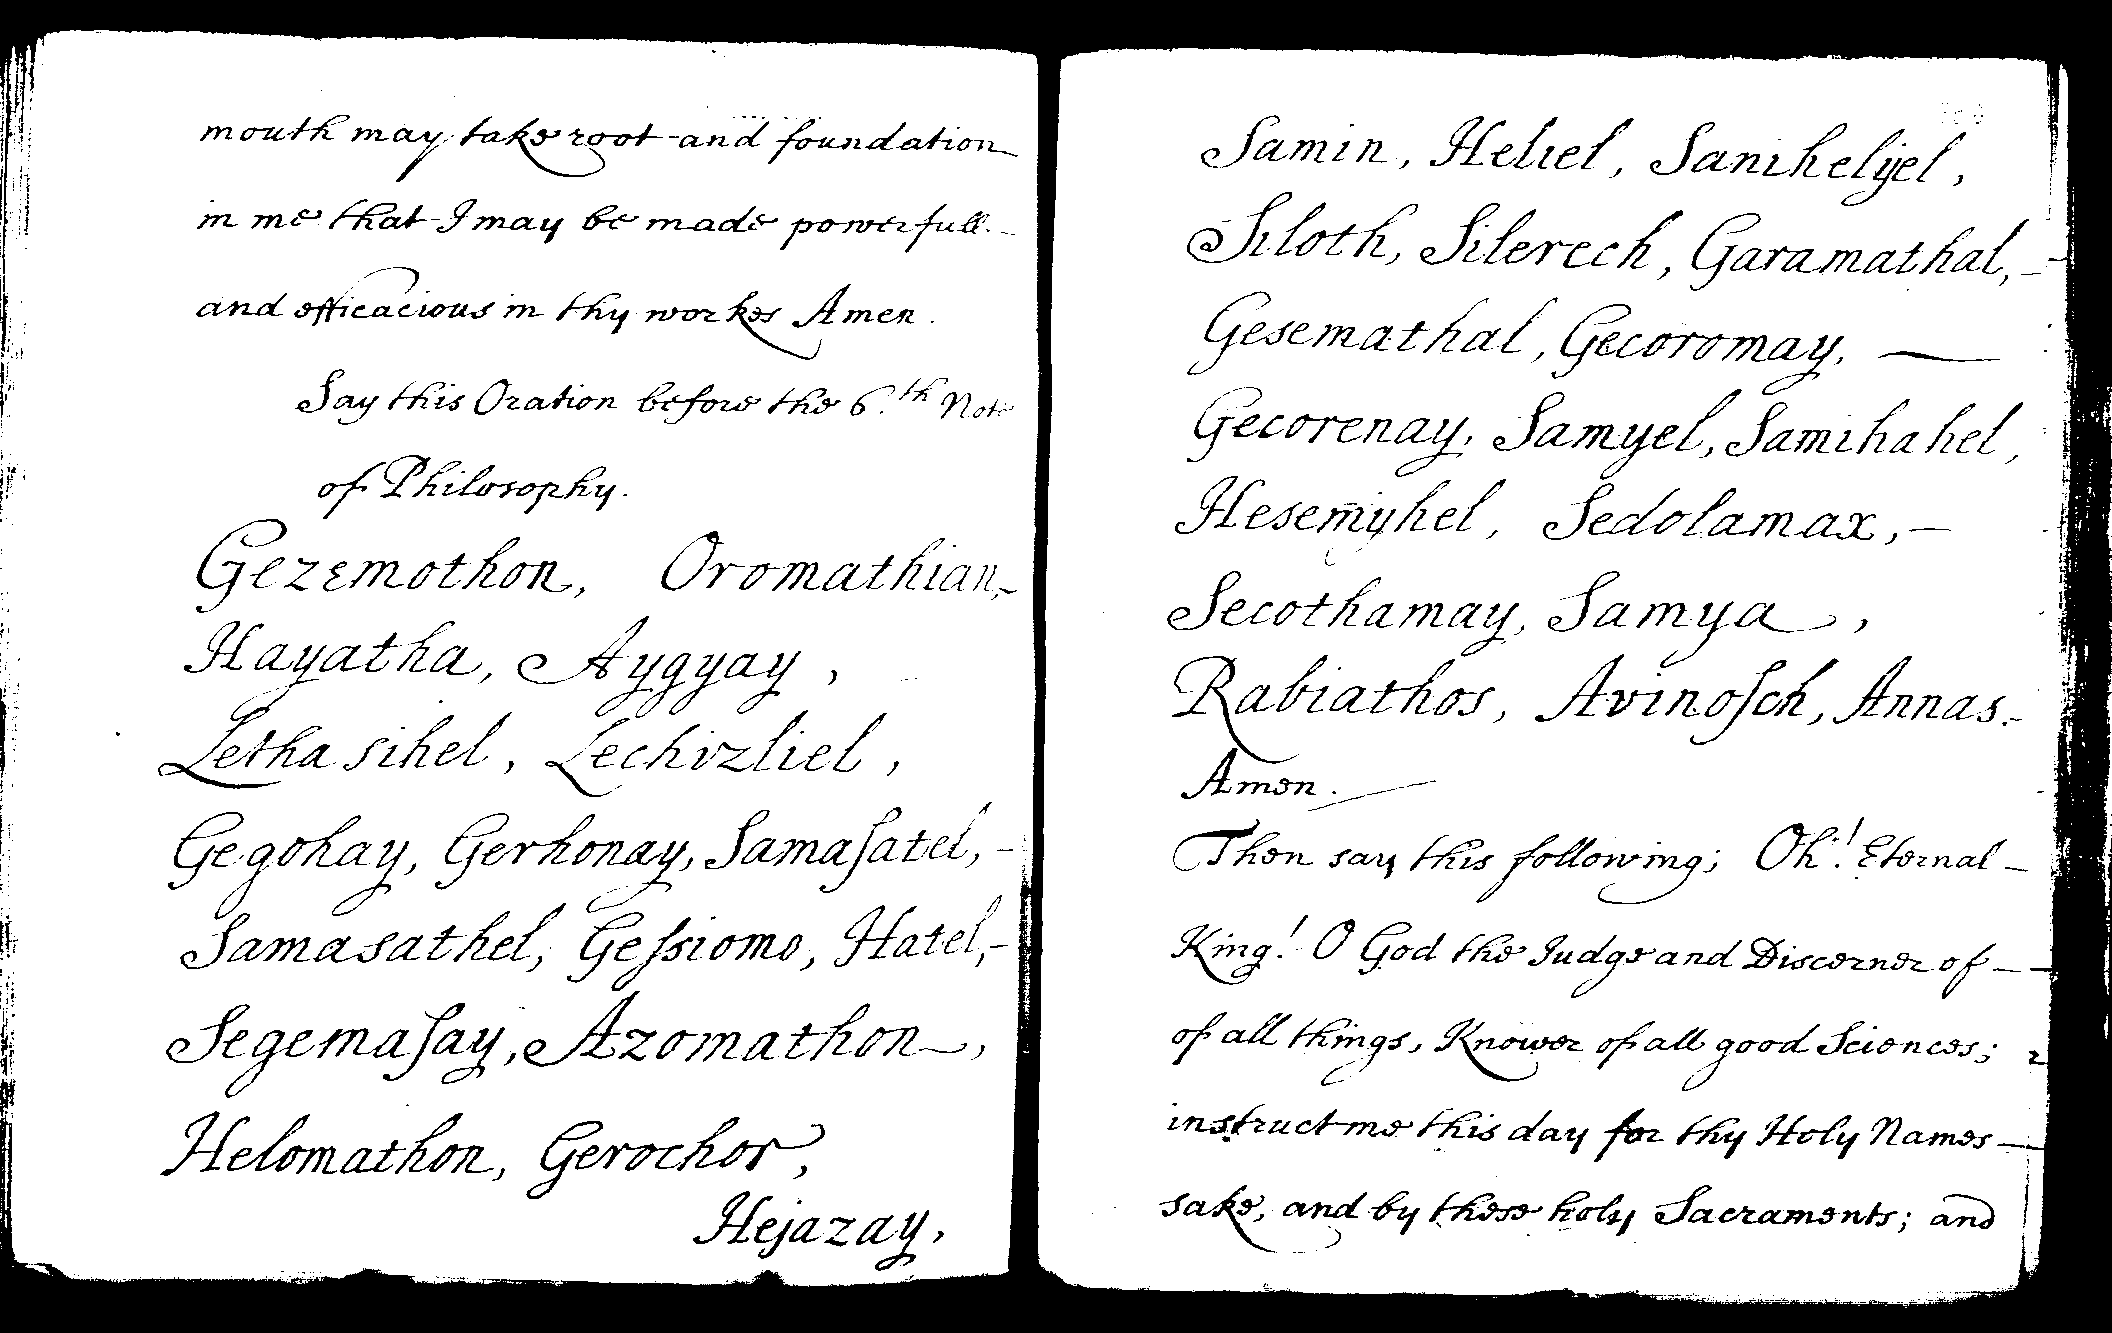 mouth may take root and foundation
in me that I may be made powerfull.
and efficacious in thy workes Amen.
Say this Oration before the 6.th Note
of Philosophy.
Gezemothon, Oromathian,
Hayatha, Aygyay,
Letha sihel, Lechizliel,
Gegohay, Gerhonay, Samaſatel,
Samasathel, Geſsiomo, Hatel,
Segemaſay, Azomathon,
Helomathon, Gerochor,
Hejazay,
Samin, Heliel, Sanihelyel,
Siloth, Silerech, Garamathal,
Gesemathal, Gecoromay,
Gecorenay, Samyel, Samihahel,
Hesemyhel, Sedolamax,
Secothamay, Samya,
Rabiathos, Avinoſch, Annas.
Amen.
Then say this following; Oh! Eternal
King! O God the Judge and Discerner of
of all things, Knower of all good Sciences;
instruct me this day for thy Holy Names
sake, and by these holy Sacraments; and